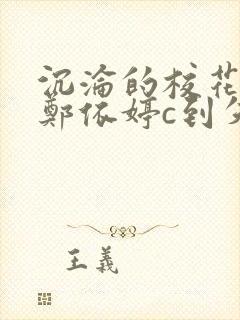 沉沦的校花
鄭依婷c到
王義